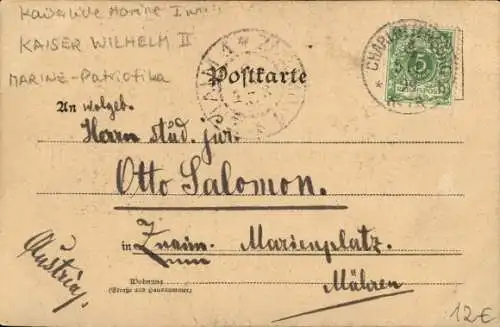 Kaiserliche Marine
KAISER WILHELM II
MARINE-Patriotika
Postkarte
ZNAIM
CHARLOTTENBURG
5
REICHSPOST
An wolgeb.
Herrn stud. jur.
Otto Salomon.
in Znaim. Marienplatz.
Mähren
Wohnung
(Straße und Hausnummer)
Austria,
12€